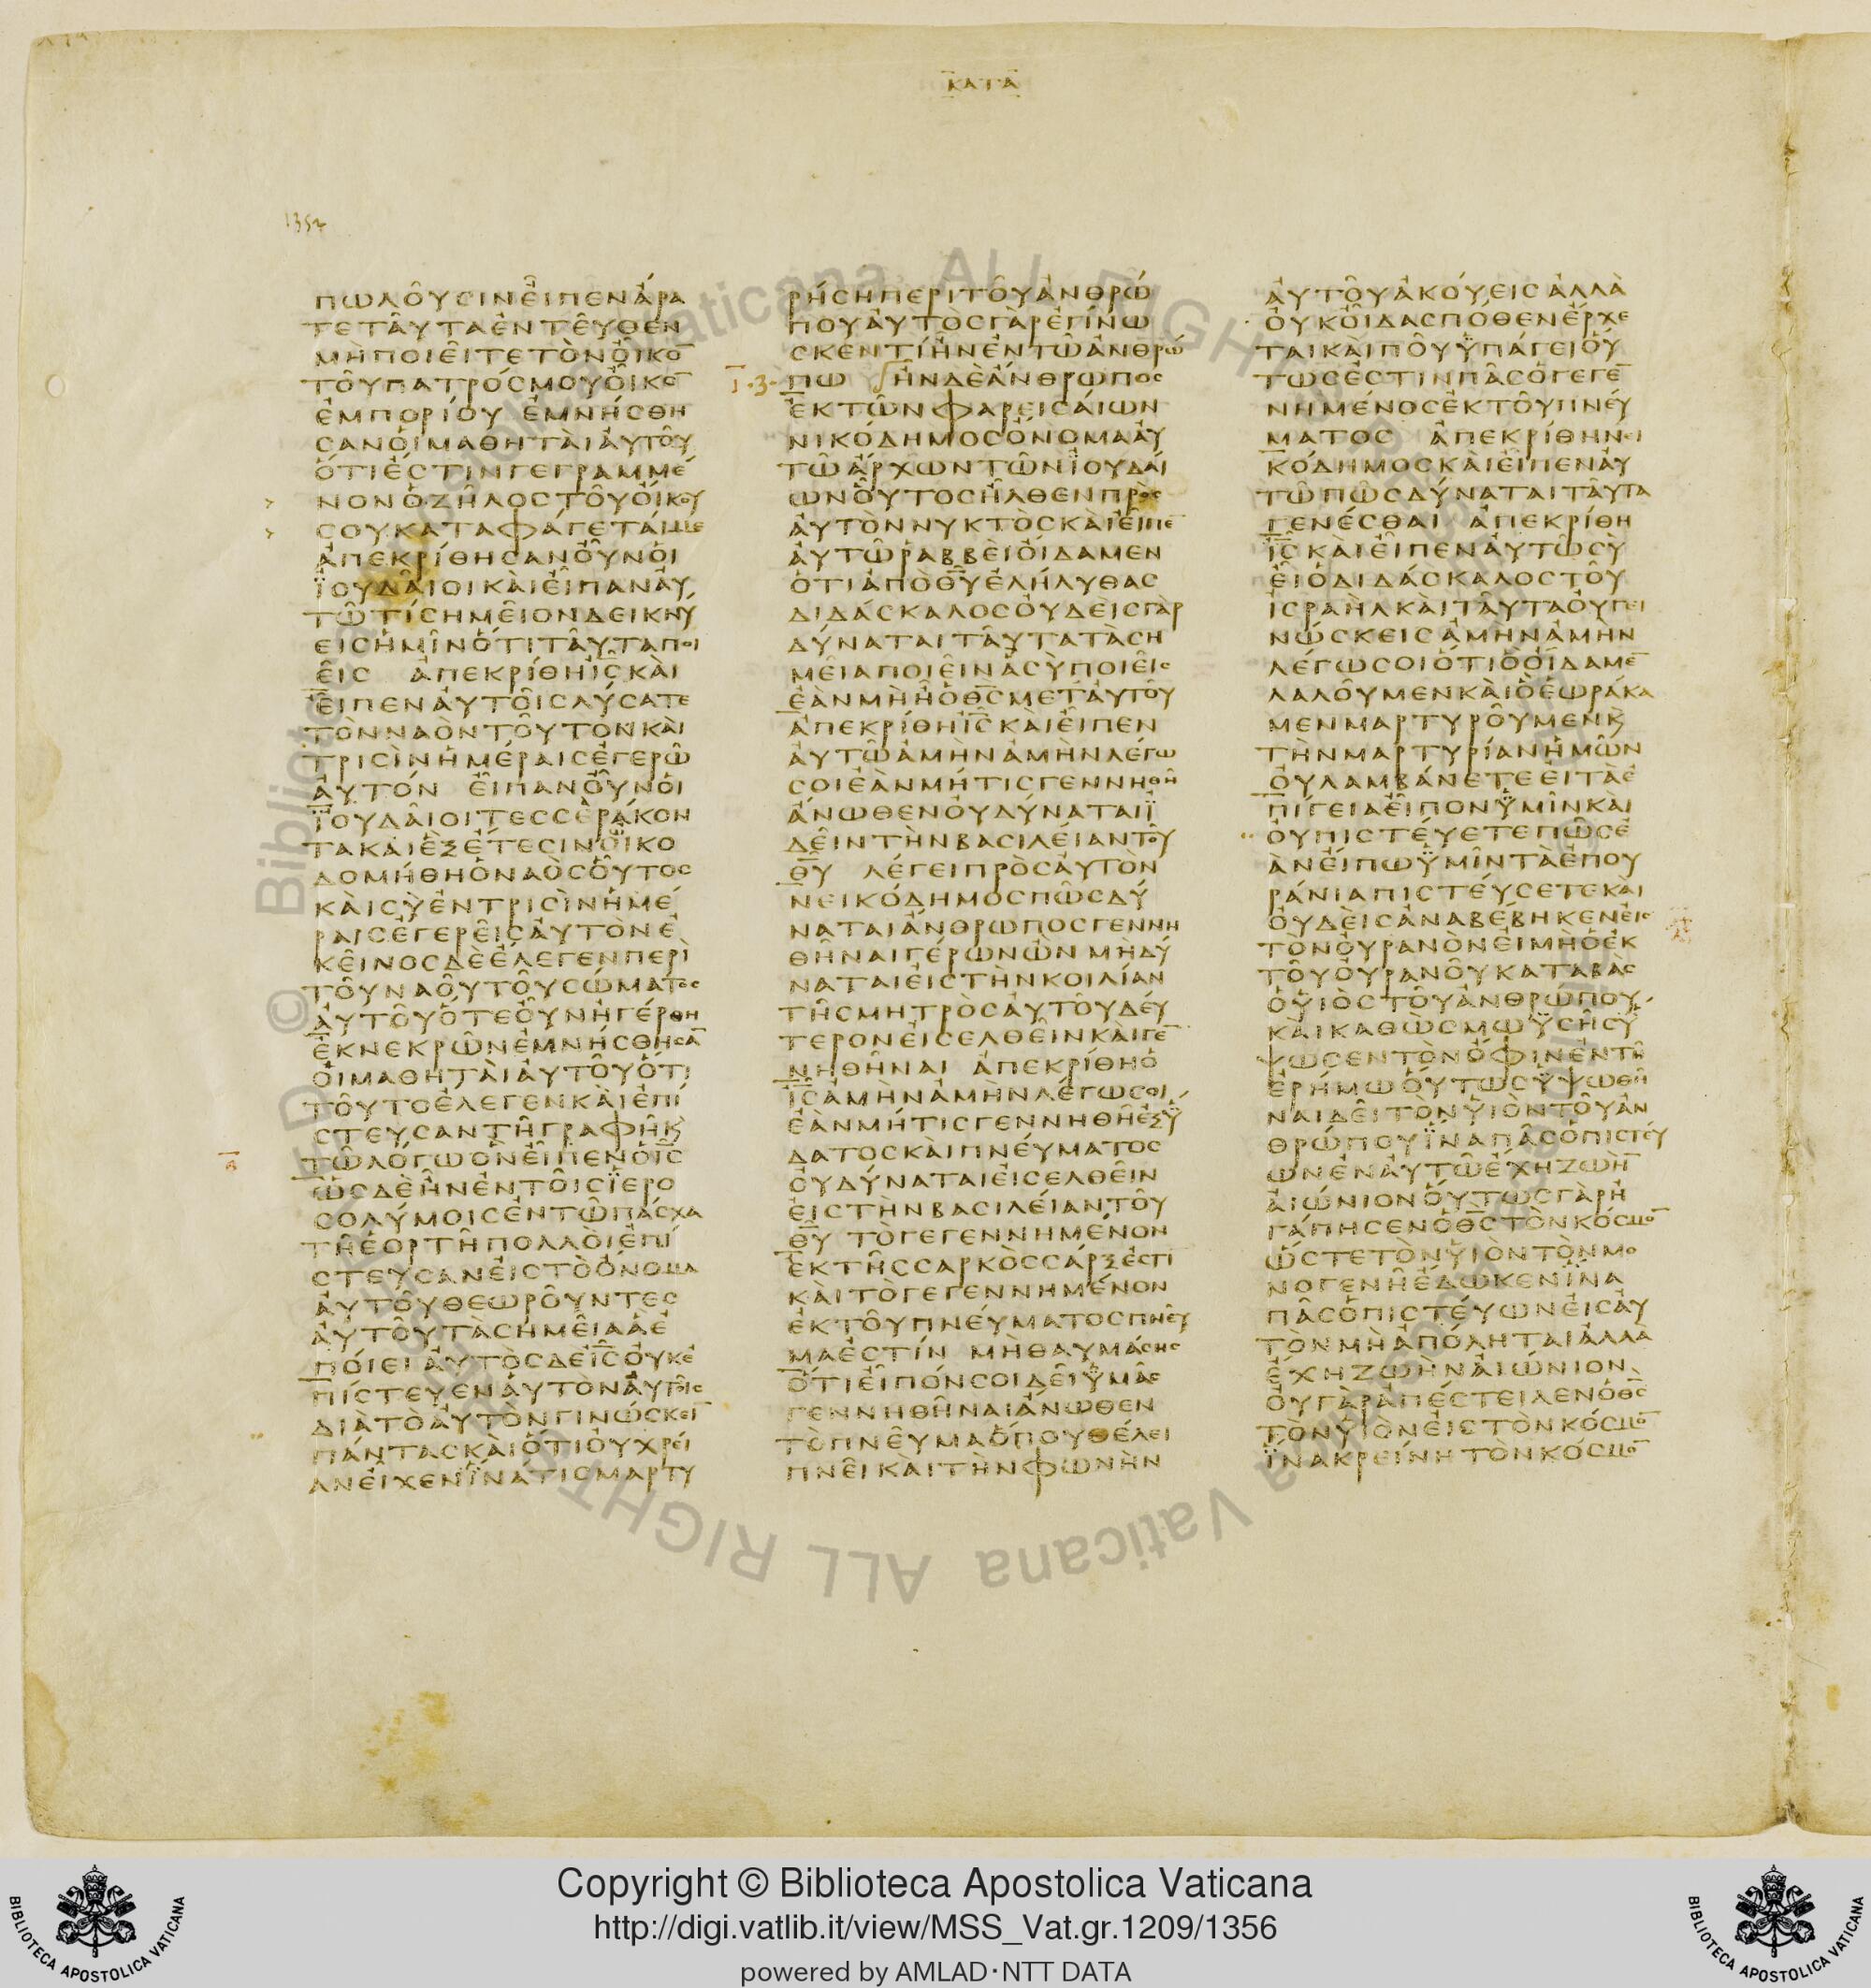 ΚΑΤΑ
1352
ΠΩΛΟΥϹΙΝΕΙΠΕΝΑΡΑ
ΤΕΤΑΥΤΑΕΝΤΕΥΘΕΝ
ΜΗΠΟΙΕΙΤΕΤΟΝΟΙΚΟ̅
ΤΟΥΠΑΤΡΟϹΜΟΥΟΙΚΟ̅
ΕΜΠΟΡΙΟΥ ΕΜΝΗϹΘΗ
ϹΑΝΟΙΜΑΘΗΤΑΙΑΥΤΟΥ
ΟΤΙΕϹΤΙΝΓΕΓΡΑΜΜΕ
ΝΟΝΟΖΗΛΟϹΤΟΥΟΙΚΟΥ
ϹΟΥΚΑΤΑΦΑΓΕΤΑΙΜΕ
ΑΠΕΚΡΙΘΗϹΑΝΟΥΝΟΙ
ΪΟΥΔΑΙΟΙΚΑΙΕΙΠΑΝΑΥ
ΤΩΤΙϹΗΜΕΙΟΝΔΕΙΚΝΥ
ΕΙϹΗΜΙΝΟΤΙΤΑΥΤΑΠΟΙ
ΕΙϹ ΑΠΕΚΡΙΘΗΙ̅Ϲ̅ΚΑΙ
ΕΙΠΕΝΑΥΤΟΙϹΛΥϹΑΤΕ
ΤΟΝΝΑΟΝΤΟΥΤΟΝΚΑΙ
ΤΡΙϹΙΝΗΜΕΡΑΙϹΕΓΕΡΩ
ΑΥΤΟΝ ΕΙΠΑΝΟΥΝΟΙ
ΪΟΥΔΑΙΟΙΤΕϹϹΕΡΑΚΟΝ
ΤΑΚΑΙΕΞΕΤΕϹΙΝΟΙΚΟ
ΔΟΜΗΘΗΟΝΑΟϹΟΥΤΟϹ
ΚΑΙϹΥΕΝΤΡΙϹΙΝΗΜΕ
ΡΑΙϹΕΓΕΡΕΙϹΑΥΤΟΝΕ
ΚΕΙΝΟϹΔΕΕΛΕΓΕΝΠΕΡΙ
ΤΟΥΝΑΟΥΤΟΥϹΩΜΑΤΟϹ
ΑΥΤΟΥΟΤΕΟΥΝΗΓΕΡΘΗ
ΕΚΝΕΚΡΩΝΕΜΝΗϹΘΗϹΑ̅
ΟΙΜΑΘΗΤΑΙΑΥΤΟΥΟΤΙ
ΤΟΥΤΟΕΛΕΓΕΝΚΑΙΕΠΙ
ϹΤΕΥϹΑΝΤΗΓΡΑΦΗΚ
ΤΩΛΟΓΩΟΝΕΙΠΕΝΟΙ̅Ϲ̅
Α̅ ΩϹΔΕΗΝΕΝΤΟΙϹΪΕΡΟ
ϹΟΛΥΜΟΙϹΕΝΤΩΠΑϹΧΑ
ΤΗΕΟΡΤΗΠΟΛΛΟΙΕΠΙ
ϹΤΕΥϹΑΝΕΙϹΤΟΟΝΟΜΑ
ΑΥΤΟΥΘΕΩΡΟΥΝΤΕϹ
ΑΥΤΟΥΤΑϹΗΜΕΙΑΑΕ
ΠΟΙΕΙΑΥΤΟϹΔΕΙ̅Ϲ̅ΟΥΚΕ
ΠΙϹΤΕΥΕΝΑΥΤΟΝΑΥΤΟΙϹ
ΔΙΑΤΟΑΥΤΟΝΓΙΝΩϹΚΕΙ̅
ΠΑΝΤΑϹΚΑΙΟΤΙΟΥΧΡΕΙ
ΑΝΕΙΧΕΝΪΝΑΤΙϹΜΑΡΤΥ
ΡΗϹΗΠΕΡΙΤΟΥΑΝΘΡΩ
ΠΟΥΑΥΤΟϹΓΑΡΕΓΙΝΩ
ϹΚΕΝΤΙΗΝΕΝΤΩΑΝΘΡΩ
Γ̅.3. ΠΩ ΗΝΔΕΑΝΘΡΩΠΟϹ
ΕΚΤΩΝΦΑΡΕΙϹΑΙΩΝ
ΝΙΚΟΔΗΜΟϹΟΝΟΜΑΑΥ
ΤΩΑΡΧΩΝΤΩΝΪΟΥΔΑΙ
ΩΝΟΥΤΟϹΗΛΘΕΝΠΡΟϹ
ΑΥΤΟΝΝΥΚΤΟϹΚΑΙΕΙΠΕ̅
ΑΥΤΩΡΑΒΒΕΙΟΙΔΑΜΕΝ
ΟΤΙΑΠΟΘ̅Υ̅ΕΛΗΛΥΘΑϹ
ΔΙΔΑϹΚΑΛΟϹΟΥΔΕΙϹΓΑΡ
ΔΥΝΑΤΑΙΤΑΥΤΑΤΑϹΗ
ΜΕΙΑΠΟΙΕΙΝΑϹΥΠΟΙΕΙϹ
ΕΑΝΜΗΗΟΘ̅Ϲ̅ΜΕΤΑΥΤΟΥ
ΑΠΕΚΡΙΘΗΙ̅Ϲ̅ΚΑΙΕΙΠΕΝ
ΑΥΤΩΑΜΗΝΑΜΗΝΛΕΓΩ
ϹΟΙΕΑΝΜΗΤΙϹΓΕΝΝΗΘΗ
ΑΝΩΘΕΝΟΥΔΥΝΑΤΑΙΪ
ΔΕΙΝΤΗΝΒΑϹΙΛΕΙΑΝΤΟΥ
Θ̅Υ̅ ΛΕΓΕΙΠΡΟϹΑΥΤΟΝ
ΝΕΙΚΟΔΗΜΟϹΠΩϹΔΥ
ΝΑΤΑΙΑΝΘΡΩΠΟϹΓΕΝΝΗ
ΘΗΝΑΙΓΕΡΩΝΩΝ ΜΗΔΥ
ΝΑΤΑΙΕΙϹΤΗΝΚΟΙΛΙΑΝ
ΤΗϹΜΗΤΡΟϹΑΥΤΟΥΔΕΥ
ΤΕΡΟΝΕΙϹΕΛΘΕΙΝΚΑΙΓΕ̅
ΝΗΘΗΝΑΙ ΑΠΕΚΡΙΘΗΟ
Ι̅Ϲ̅ΑΜΗΝΑΜΗΝΛΕΓΩϹΟΙ
ΕΑΝΜΗΤΙϹΓΕΝΝΗΘΗΕΞΫ
ΔΑΤΟϹΚΑΙΠΝΕΥΜΑΤΟϹ
ΟΥΔΥΝΑΤΑΙΕΙϹΕΛΘΕΙΝ
ΕΙϹΤΗΝΒΑϹΙΛΕΙΑΝΤΟΥ
Θ̅Υ̅ ΤΟΓΕΓΕΝΝΗΜΕΝΟΝ
ΕΚΤΗϹϹΑΡΚΟϹϹΑΡΞΕϹΤΙ
ΚΑΙΤΟΓΕΓΕΝΝΗΜΕΝΟΝ
ΕΚΤΟΥΠΝΕΥΜΑΤΟϹΠΝΕΥ
ΜΑΕϹΤΙΝ ΜΗΘΑΥΜΑϹΗϹ
ΟΤΙΕΙΠΟΝϹΟΙΔΕΙΫΜΑϹ
ΓΕΝΝΗΘΗΝΑΙΑΝΩΘΕΝ
ΤΟΠΝΕΥΜΑΟΠΟΥΘΕΛΕΙ
ΠΝΕΙΚΑΙΤΗΝΦΩΝΗΝ
ΑΥΤΟΥΑΚΟΥΕΙϹΑΛΛΑ
ΟΥΚΟΙΔΑϹΠΟΘΕΝΕΡΧΕ
ΤΑΙΚΑΙΠΟΥΫΠΑΓΕΙΟΥ
ΤΩϹΕϹΤΙΝΠΑϹΟΓΕΓΕ̅
ΝΗΜΕΝΟϹΕΚΤΟΥΠΝΕΥ
ΜΑΤΟϹ ΑΠΕΚΡΙΘΗΝΕΙ
ΚΟΔΗΜΟϹΚΑΙΕΙΠΕΝΑΥ
ΤΩΠΩϹΔΥΝΑΤΑΙΤΑΥΤΑ
ΓΕΝΕϹΘΑΙ ΑΠΕΚΡΙΘΗ
Ι̅Ϲ̅ΚΑΙΕΙΠΕΝΑΥΤΩϹΥ
ΕΙΟΔΙΔΑϹΚΑΛΟϹΤΟΥ
ΙϹΡΑΗΛΚΑΙΤΑΥΤΑΟΥΓΕΙ
ΝΩϹΚΕΙϹΑΜΗΝΑΜΗΝ
ΛΕΓΩϹΟΙΟΤΙΟΟΙΔΑΜΕ̅
ΛΑΛΟΥΜΕΝΚΑΙΟΕΩΡΑΚΑ
ΜΕΝΜΑΡΤΥΡΟΥΜΕΝΚ
ΤΗΝΜΑΡΤΥΡΙΑΝΗΜΩΝ
ΟΥΛΑΜΒΑΝΕΤΕΕΙΤΑΕ
ΠΙΓΕΙΑΕΙΠΟΝΫΜΙΝΚΑΙ
ΟΥΠΙϹΤΕΥΕΤΕΠΩϹΕ
ΑΝΕΙΠΩΫΜΙΝΤΑΕΠΟΥ
ΡΑΝΙΑΠΙϹΤΕΥϹΕΤΕΚΑΙ
ΟΥΔΕΙϹΑΝΑΒΕΒΗΚΕΝΕΙϹ
ΤΟΝΟΥΡΑΝΟΝΕΙΜΗΟΕΚ
ΤΟΥΟΥΡΑΝΟΥΚΑΤΑΒΑϹ
ΟΫΙΟϹΤΟΥΑΝΘΡΩΠΟΥ
ΚΑΙΚΑΘΩϹΜΩΫϹΗϹΫ
ΨΩϹΕΝΤΟΝΟΦΙΝΕΝΤΗ
ΕΡΗΜΩΟΥΤΩϹΫΨΩΘΗ
ΝΑΙΔΕΙΤΟΝΫΙΟΝΤΟΥΑΝ
ΘΡΩΠΟΥΪΝΑΠΑϹΟΠΙϹΤΕΥ
ΩΝΕΝΑΥΤΩΕΧΗΖΩΗ̅
ΑΙΩΝΙΟΝΟΥΤΩϹΓΑΡΗ
ΓΑΠΗϹΕΝΟΘ̅Ϲ̅ΤΟΝΚΟϹΜΟ̅
ΩϹΤΕΤΟΝΫΙΟΝΤΟΝΜΟ
ΝΟΓΕΝΗΕΔΩΚΕΝΪΝΑ
ΠΑϹΟΠΙϹΤΕΥΩΝΕΙϹΑΥ
ΤΟΝΜΗΑΠΟΛΗΤΑΙΑΛΛΑ
ΕΧΗΖΩΗΝΑΙΩΝΙΟΝ
ΟΥΓΑΡΑΠΕϹΤΕΙΛΕΝΟΘ̅Ϲ̅
ΤΟΝΫΙΟΝΕΙϹΤΟΝΚΟϹΜΟ̅
ΪΝΑΚΡΕΙΝΗΤΟΝΚΟϹΜΟ̅
© Biblioteca Apostolica Vaticana ALL RIGHTS RESERVED
Copyright © Biblioteca Apostolica Vaticana
http://digi.vatlib.it/view/MSS_Vat.gr.1209/1356
powered by AMLAD·NTT DATA
BIBLIOTECA APOSTOLICA VATICANA
BIBLIOTECA APOSTOLICA VATICANA